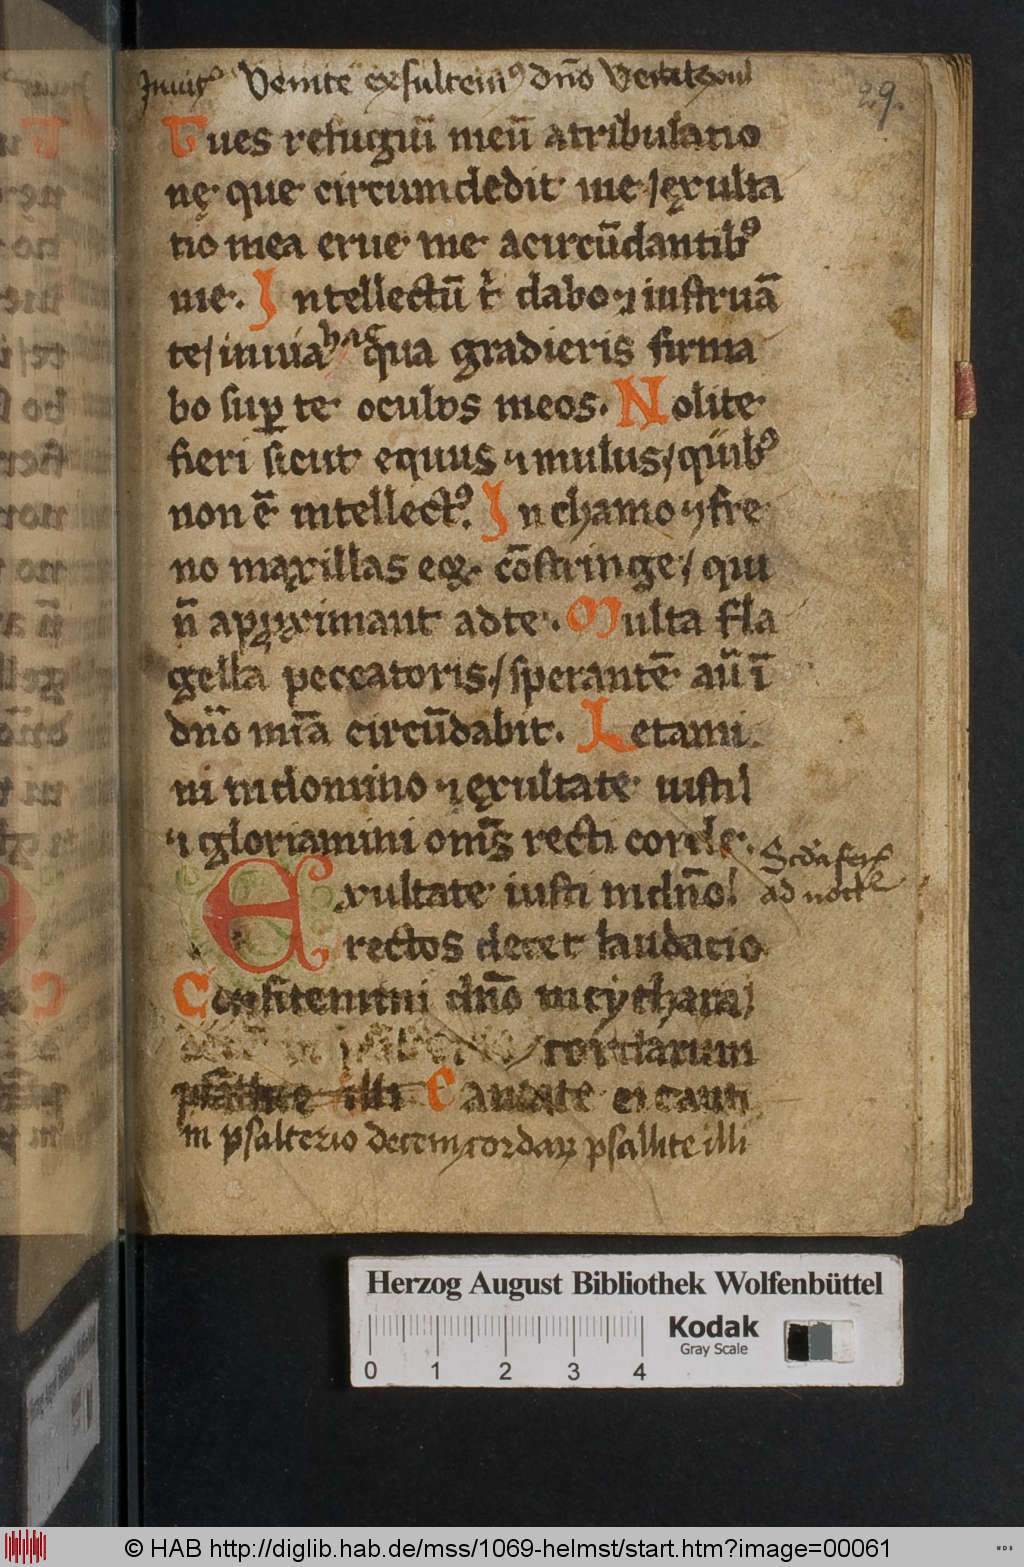 Inuit᷒ Venite exsultemꝰ dn̄o
29.
Tu es refugiū meū a tribulatio
nę que circumdedit me / exulta
tio mea erue me a circūdantibꝰ
me. Intellectū t̾ dabo ⁊ instruā
te / in uia hac qua gradieris firma
bo suꝑ te oculos meos. Nolite
fieri sicut equus ⁊ mulus / quibꝰ
non ē intellectꝰ. In chamo ⁊ fre
no maxillas eoꝝ cōstringe / qui
n̄ aꝓximant ad te. Multa fla
gella peccatoris / sperantē au̅ ī
dn̄o mīa circūdabit. Letami
ni in domino ⁊ exultate iusti
⁊ gloriamini oms̄ recti corde.
Exultate iusti in dn̄o
rectos decet laudatio
Confitemini dn̄o in cythara
cordarum
psallite illi Cantate ei canti
in psalterio decem cordaꝝ psallite illi
Scd̄a fer᷒
ad noct᷒
Herzog August Bibliothek Wolfenbüttel
Kodak
Gray Scale
0 1 2 3 4
© HAB http://diglib.hab.de/mss/1069-helmst/start.htm?image=00061